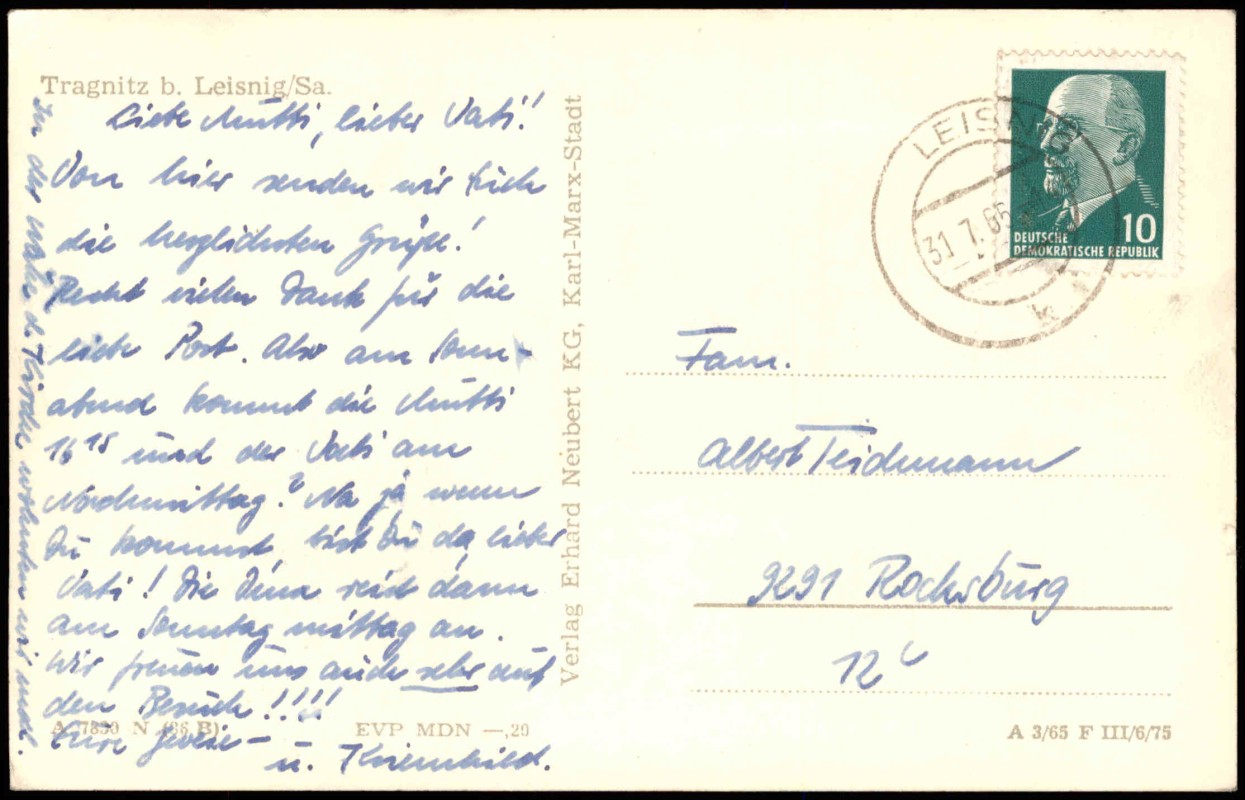 Tragnitz b. Leisnig/Sa.
Liebe Mutti, lieber Vati!
Von hier senden wir Euch
die herzlichsten Grüße!
Recht vielen Dank für die
liebe Post. Also am Sonn-
abend kommt die Mutti
16¹⁵ und der Vati am
Nachmittag? Na ja wenn
Du kommst bist Du da lieber
Vati! Die Oma reist dann
am Sonntag mittag an.
Wir freuen uns auch sehr auf
den Besuch!!!!
Eure
u. Krimhild.
In der Nähe d. Kirche wohnten wir mal.
A 7830 N (86 B)
EVP MDN —,20
Verlag Erhard Neubert KG, Karl-Marx-Stadt
LEISNIG
31.7.65
k
10
DEUTSCHE
DEMOKRATISCHE REPUBLIK
Fam.
Albert Teichmann
9291 Rochsburg
12 c
A 3/65 F III/6/75